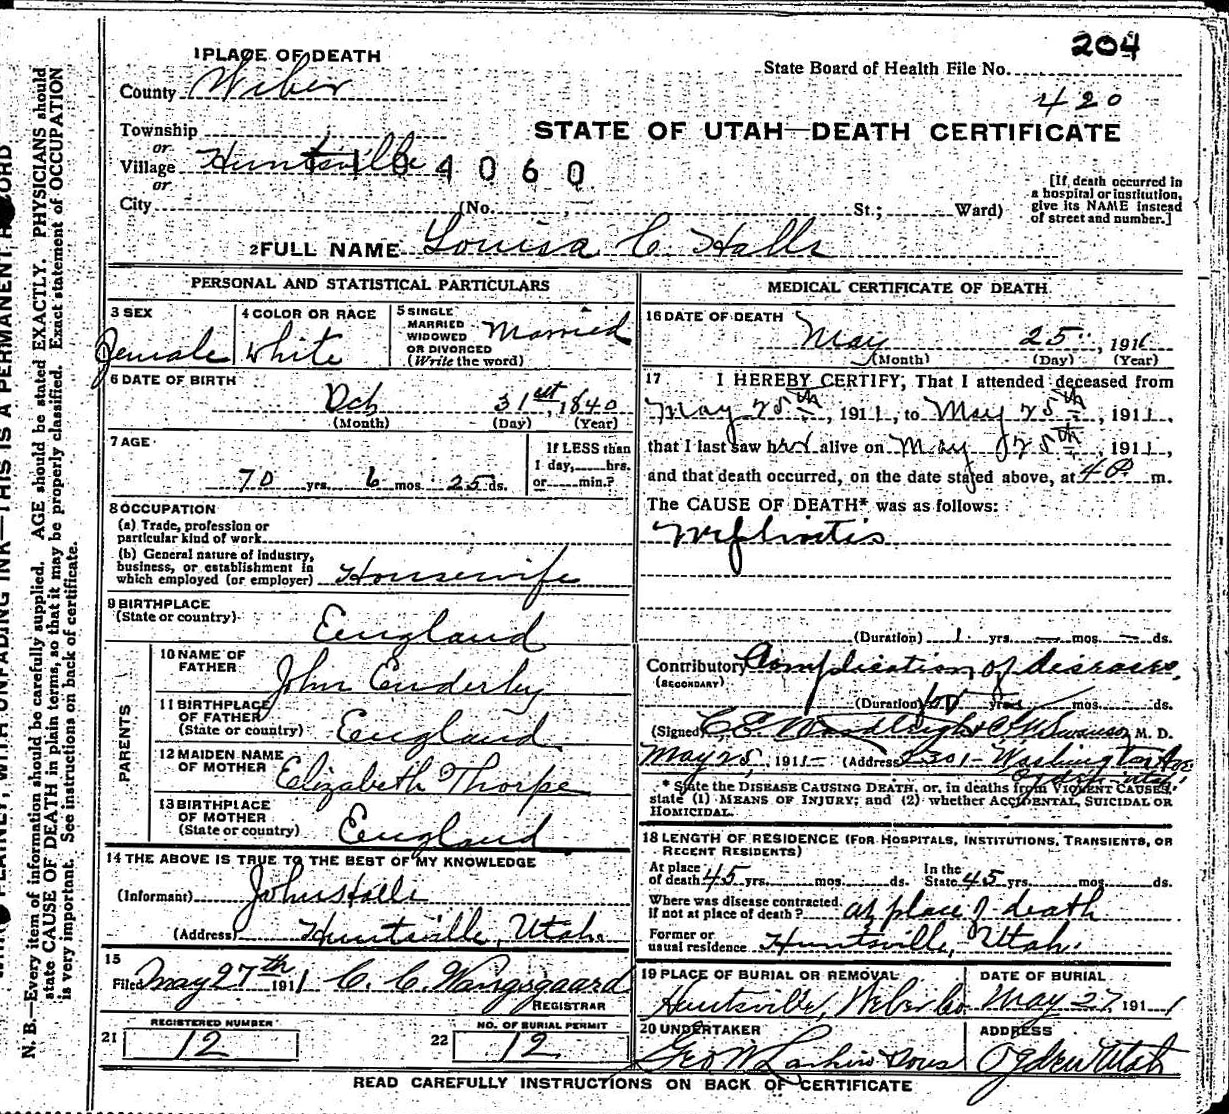 204
1 PLACE OF DEATH
State Board of Health File No.
County Weber
420
Township
STATE OF UTAH—DEATH CERTIFICATE
or
Village Huntsville
4060
or
City (No. St.; Ward)
[If death occurred in
a hospital or institution,
give its NAME instead
of street and number.]
2 FULL NAME Louisa C. Halls
PERSONAL AND STATISTICAL PARTICULARS
3 SEX
Female
4 COLOR OR RACE
White
5 SINGLE
MARRIED
WIDOWED
OR DIVORCED
(Write the word)
Married
6 DATE OF BIRTH
Oct 31st, 1840
(Month) (Day) (Year)
7 AGE
70 yrs. 6 mos. 25 ds.
If LESS than
1 day, hrs.
or min.?
8 OCCUPATION
(a) Trade, profession or
particular kind of work
(b) General nature of industry,
business, or establishment in
which employed (or employer) Housewife
9 BIRTHPLACE
(State or country) England
PARENTS
10 NAME OF
FATHER John Enderby
11 BIRTHPLACE
OF FATHER
(State or country) England
12 MAIDEN NAME
OF MOTHER Elizabeth Thorpe
13 BIRTHPLACE
OF MOTHER
(State or country) England
14 THE ABOVE IS TRUE TO THE BEST OF MY KNOWLEDGE
(Informant) John Halls
(Address) Huntsville, Utah.
15
Filed May 27th 1911 C. C. Wangsgaard
REGISTRAR
21 REGISTERED NUMBER
12
22 NO. OF BURIAL PERMIT
12
MEDICAL CERTIFICATE OF DEATH
16 DATE OF DEATH
May 25, 1911
(Month) (Day) (Year)
17 I HEREBY CERTIFY, That I attended deceased from
May 25th, 1911, to May 25th, 1911,
that I last saw her alive on May 25th, 1911,
and that death occurred, on the date stated above, at 4 P. m.
The CAUSE OF DEATH* was as follows:
Nephritis
(Duration) 1 yrs. — mos. — ds.
Contributory Complication of diseases.
(SECONDARY)
(Duration) yrs. mos. ds.
(Signed) M. D.
May 25, 1911 (Address) 2301 Washington Ave
Ogden Utah
* State the DISEASE CAUSING DEATH, or, in deaths from VIOLENT CAUSES,
state (1) MEANS OF INJURY; and (2) whether ACCIDENTAL, SUICIDAL OR
HOMICIDAL.
18 LENGTH OF RESIDENCE (FOR HOSPITALS, INSTITUTIONS, TRANSIENTS, OR
RECENT RESIDENTS)
At place
of death 45 yrs. mos. ds.
In the
State 45 yrs. mos. ds.
Where was disease contracted
if not at place of death? at place of death
Former or
usual residence Huntsville, Utah.
19 PLACE OF BURIAL OR REMOVAL
Huntsville, Weber Co.
DATE OF BURIAL
May 27, 1911
20 UNDERTAKER
Geo W Larkin & Sons
ADDRESS
Ogden Utah
READ CAREFULLY INSTRUCTIONS ON BACK OF CERTIFICATE
PLAINLY, WITH UNFADING INK—THIS IS A PERMANENT RECORD
N. B.—Every item of information should be carefully supplied. AGE should be stated EXACTLY. PHYSICIANS should
state CAUSE OF DEATH in plain terms, so that it may be properly classified. Exact statement of OCCUPATION
is very important. See instructions on back of certificate.